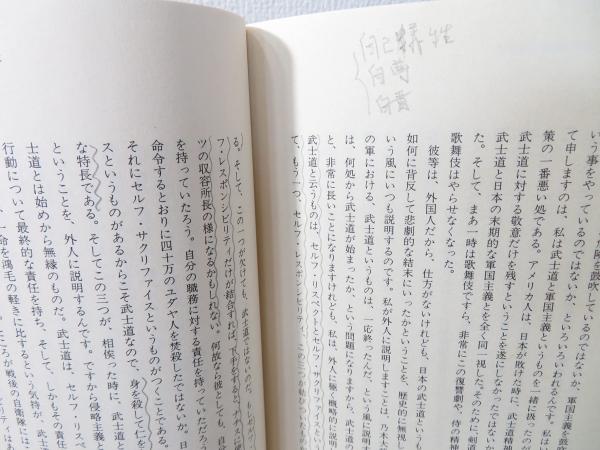 自己犠牲
自尊
自責
いう事をやっているのではないか、
て申しますのは、私は武士道と軍国主義というものを一緒に扱ったのが
策の一番悪い処である。アメリカ人は、日本が敗けた時に、武士道精神
武士道に対する敬意だけを残すということを遂にしなかった
武士道と日本の末期的な軍国主義とを全く同一視した。そのために、剣道
た。そして、まあ一時は歌舞伎ですら、非常にこの復讐劇や、侍の精神
歌舞伎はやらせなくなった。
彼等は、外国人だから、仕方がないけれども、日本の武士道というも
如何に背反して悲劇的な結末にいったかということを、歴史的に無視し
いう風にいつも説明するのです。私が外人に説明しますことは、乃木大
の軍における、武士道というものは、一応終ったんだ、という風に説明
は、何処から武士道が始まったか、という問題になりますから、武士道の
と、非常に長いことになりますけれども、私は、外人に極く概略的に説明
武士道と云うものは、セルフ・リスペクトとセルフ・サクリファイスという
て、もう一つ、セルフ・レスポンシビリティ、この三つが結
る。そして、この一つが欠けても、武士道ではないのだ。もしセルフ
フ・レスポンシビリティだけが結合すれば、下手をするとナチスに
ツの収容所長の様になるかもしれない。何故なら彼とても、自分
を持っていたろう。自分の職務に対する責任を持っていただろう
命令するとおりに四十万のユダヤ人を焚殺したではないか。日
それにセルフ・サクリファイスというものがつく
スというものがあるからこそ武士道なので、身を殺して仁を
な特長である。そしてこの三つが、相俟った時に、武士
ということを、外人に説明するんです。ですから侵略主義と
士道とは始めから無縁のものだ。武士道は、セルフ・リスペ
行動について最終的な責任を持ち、そして、しかもその責任
一命を鴻毛の軽きに比するという気持が、武士
ころが戦後の自衛隊には